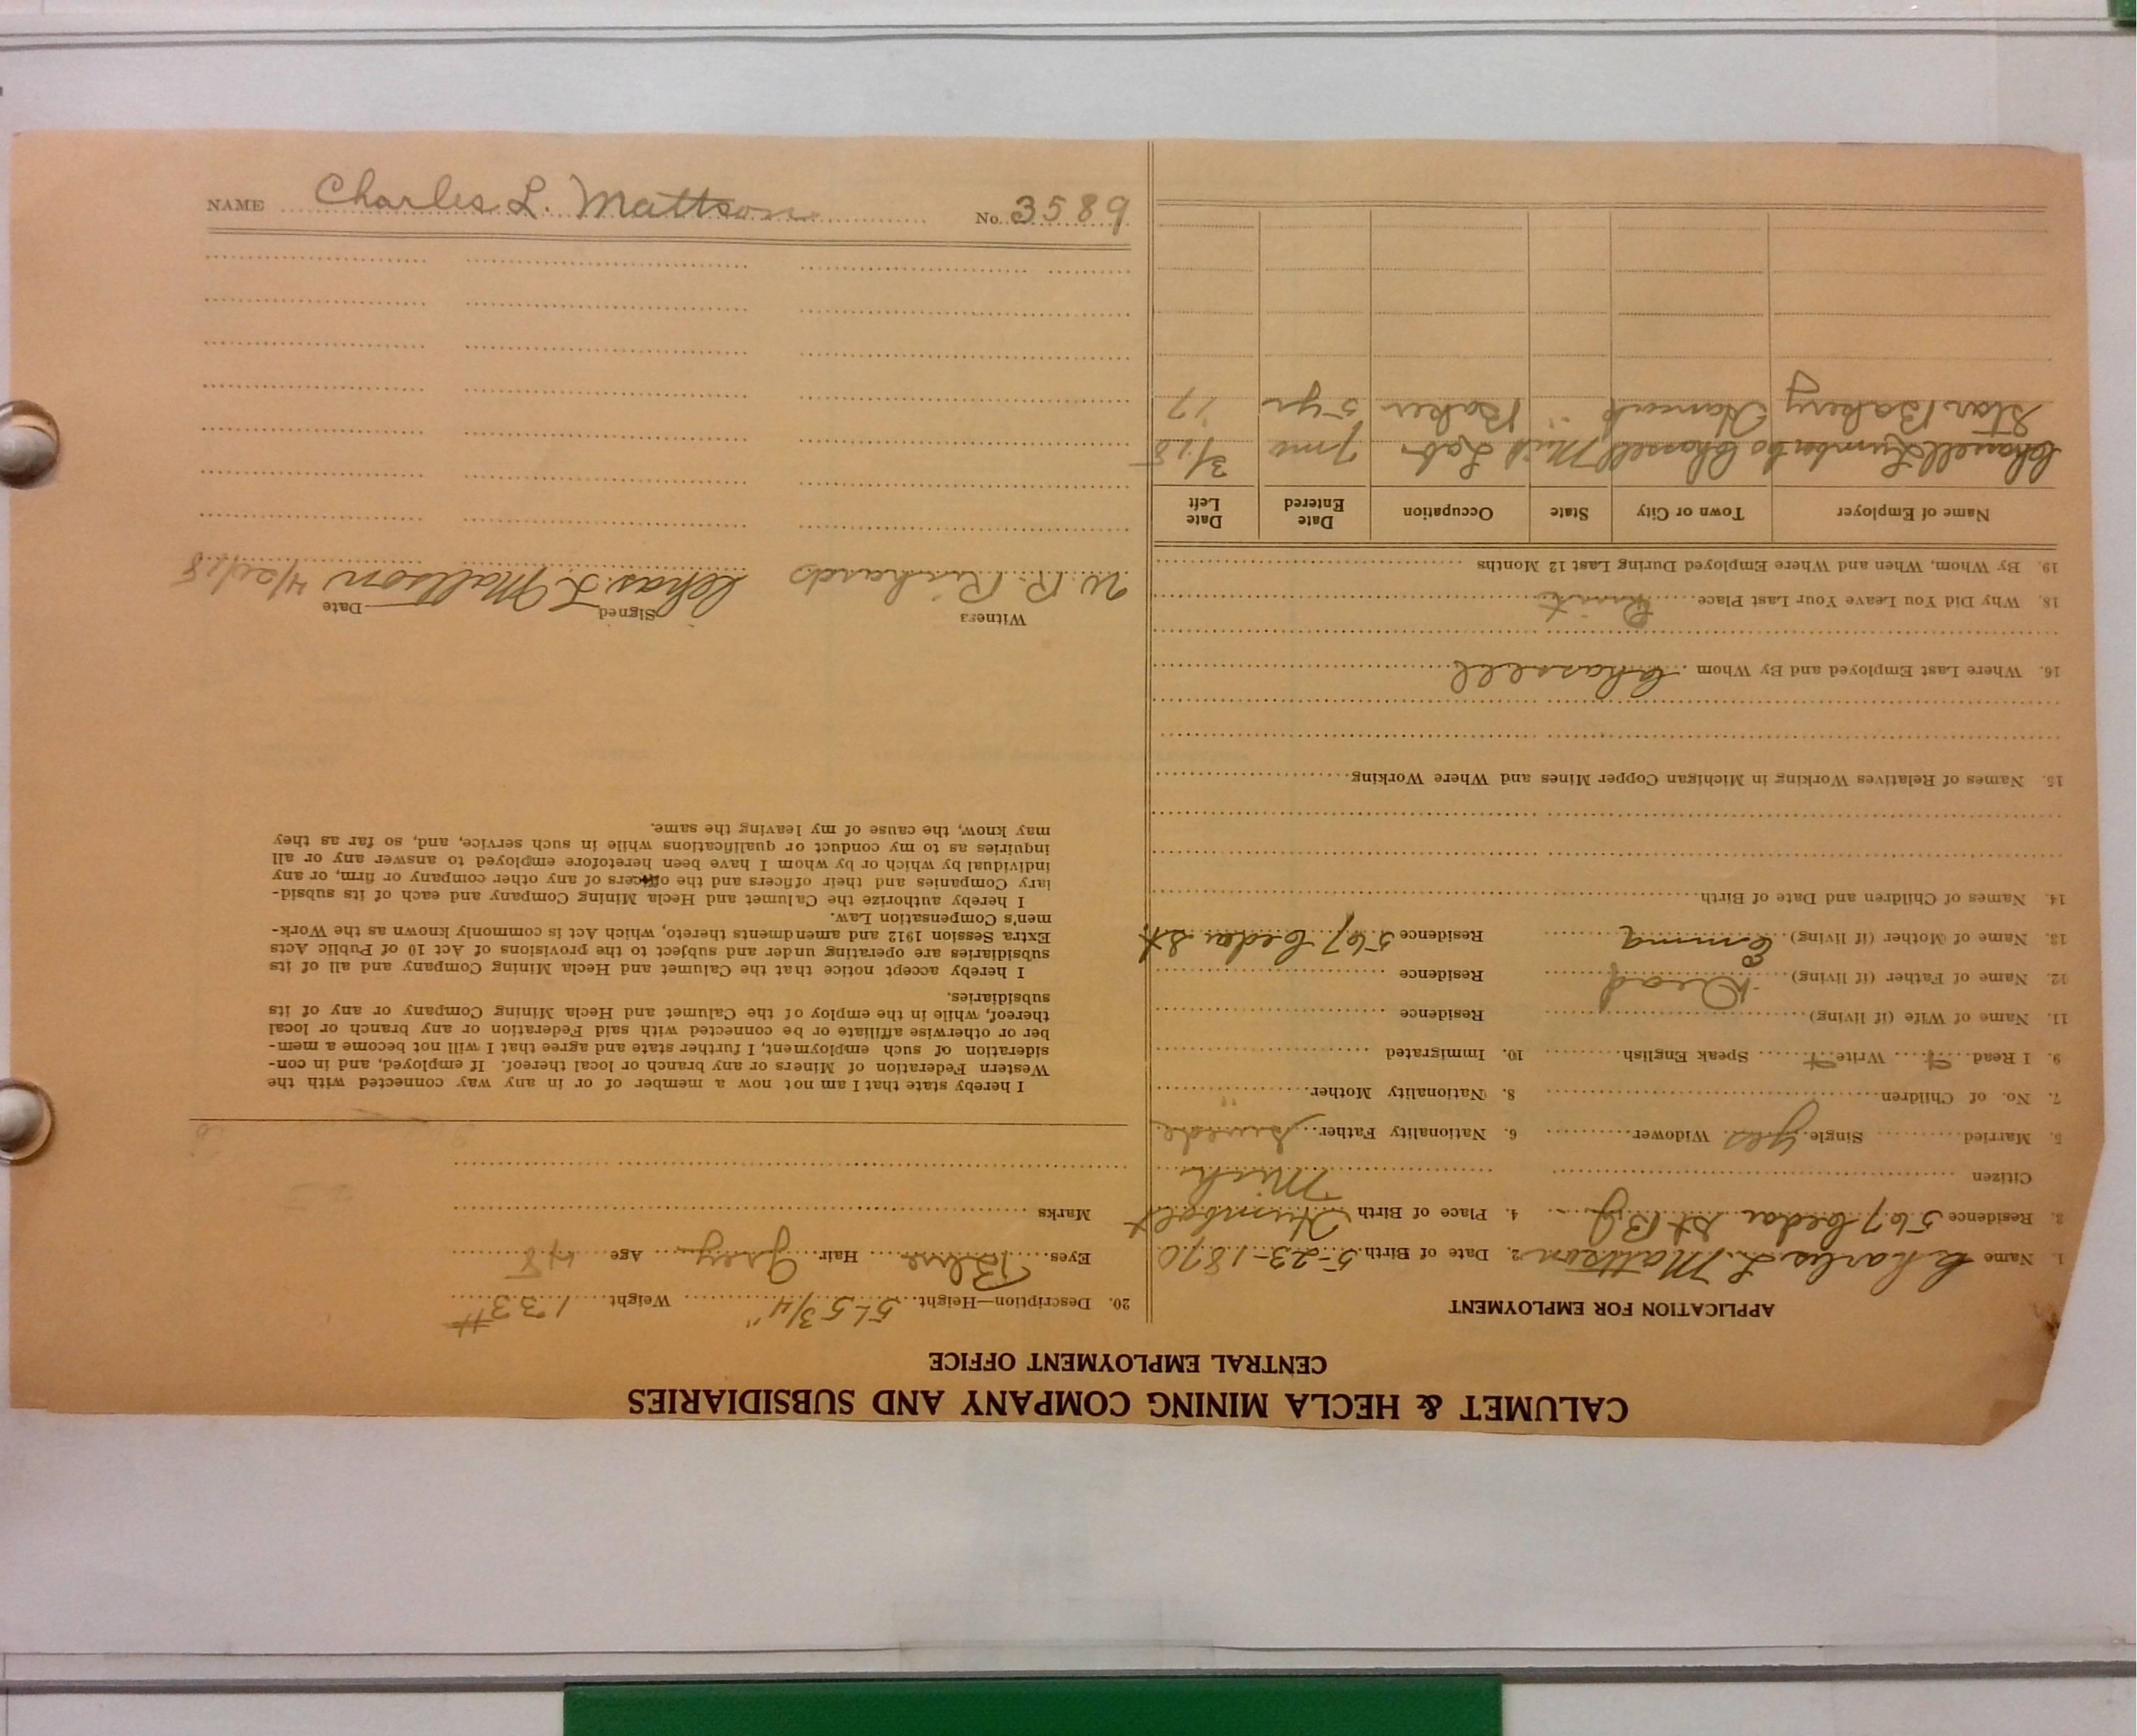 CALUMET & HECLA MINING COMPANY AND SUBSIDIARIES
CENTRAL EMPLOYMENT OFFICE
APPLICATION FOR EMPLOYMENT
1. Name Charles L. Mattson 2. Date of Birth 5-23-1870
3. Residence 567 Cedar St 4. Place of Birth Humbolt
Citizen Mich
5. Married Single yes Widower 6. Nationality Father Swede
7. No. of Children 8. Nationality Mother "
9. I Read Write Speak English 10. Immigrated
11. Name of Wife (if living) Residence
12. Name of Father (if living) Dead Residence
13. Name of Mother (if living) Emma Residence 567 Cedar St.
14. Names of Children and Date of Birth
15. Names of Relatives Working in Michigan Copper Mines and Where Working
16. Where Last Employed and By Whom Chassell
18. Why Did You Leave Your Last Place Quit
19. By Whom, When and Where Employed During Last 12 Months
Name of Employer Town or City State Occupation Date Entered Date Left
Chassell Lumber Co Chassell Mich Labr 7 mo 3/18
Star Bakery Hancock " Baker 5 yr 17
20. Description—Height 5'-5 3/4" Weight 133#
Eyes Blue Hair Grey Age 48
Marks
I hereby state that I am not now a member of or in any way connected with the
Western Federation of Miners or any branch or local thereof. If employed, and in con-
sideration of such employment, I further state and agree that I will not become a mem-
ber or otherwise affiliate or be connected with said Federation or any branch or local
thereof, while in the employ of the Calumet and Hecla Mining Company or any of its
subsidiaries.
I hereby accept notice that the Calumet and Hecla Mining Company and all of its
subsidiaries are operating under and subject to the provisions of Act 10 of Public Acts
Extra Session 1912 and amendments thereto, which Act is commonly known as the Work-
men's Compensation Law.
I hereby authorize the Calumet and Hecla Mining Company and each of its subsid-
iary Companies and their officers and the officers of any other company or firm, or any
individual by which or by whom I have been heretofore employed to answer any or all
inquiries as to my conduct or qualifications while in such service, and, so far as they
may know, the cause of my leaving the same.
Witness Signed Date
W. R. Richards Chas. L. Mattson
NAME Charles L. Mattson No. 3589